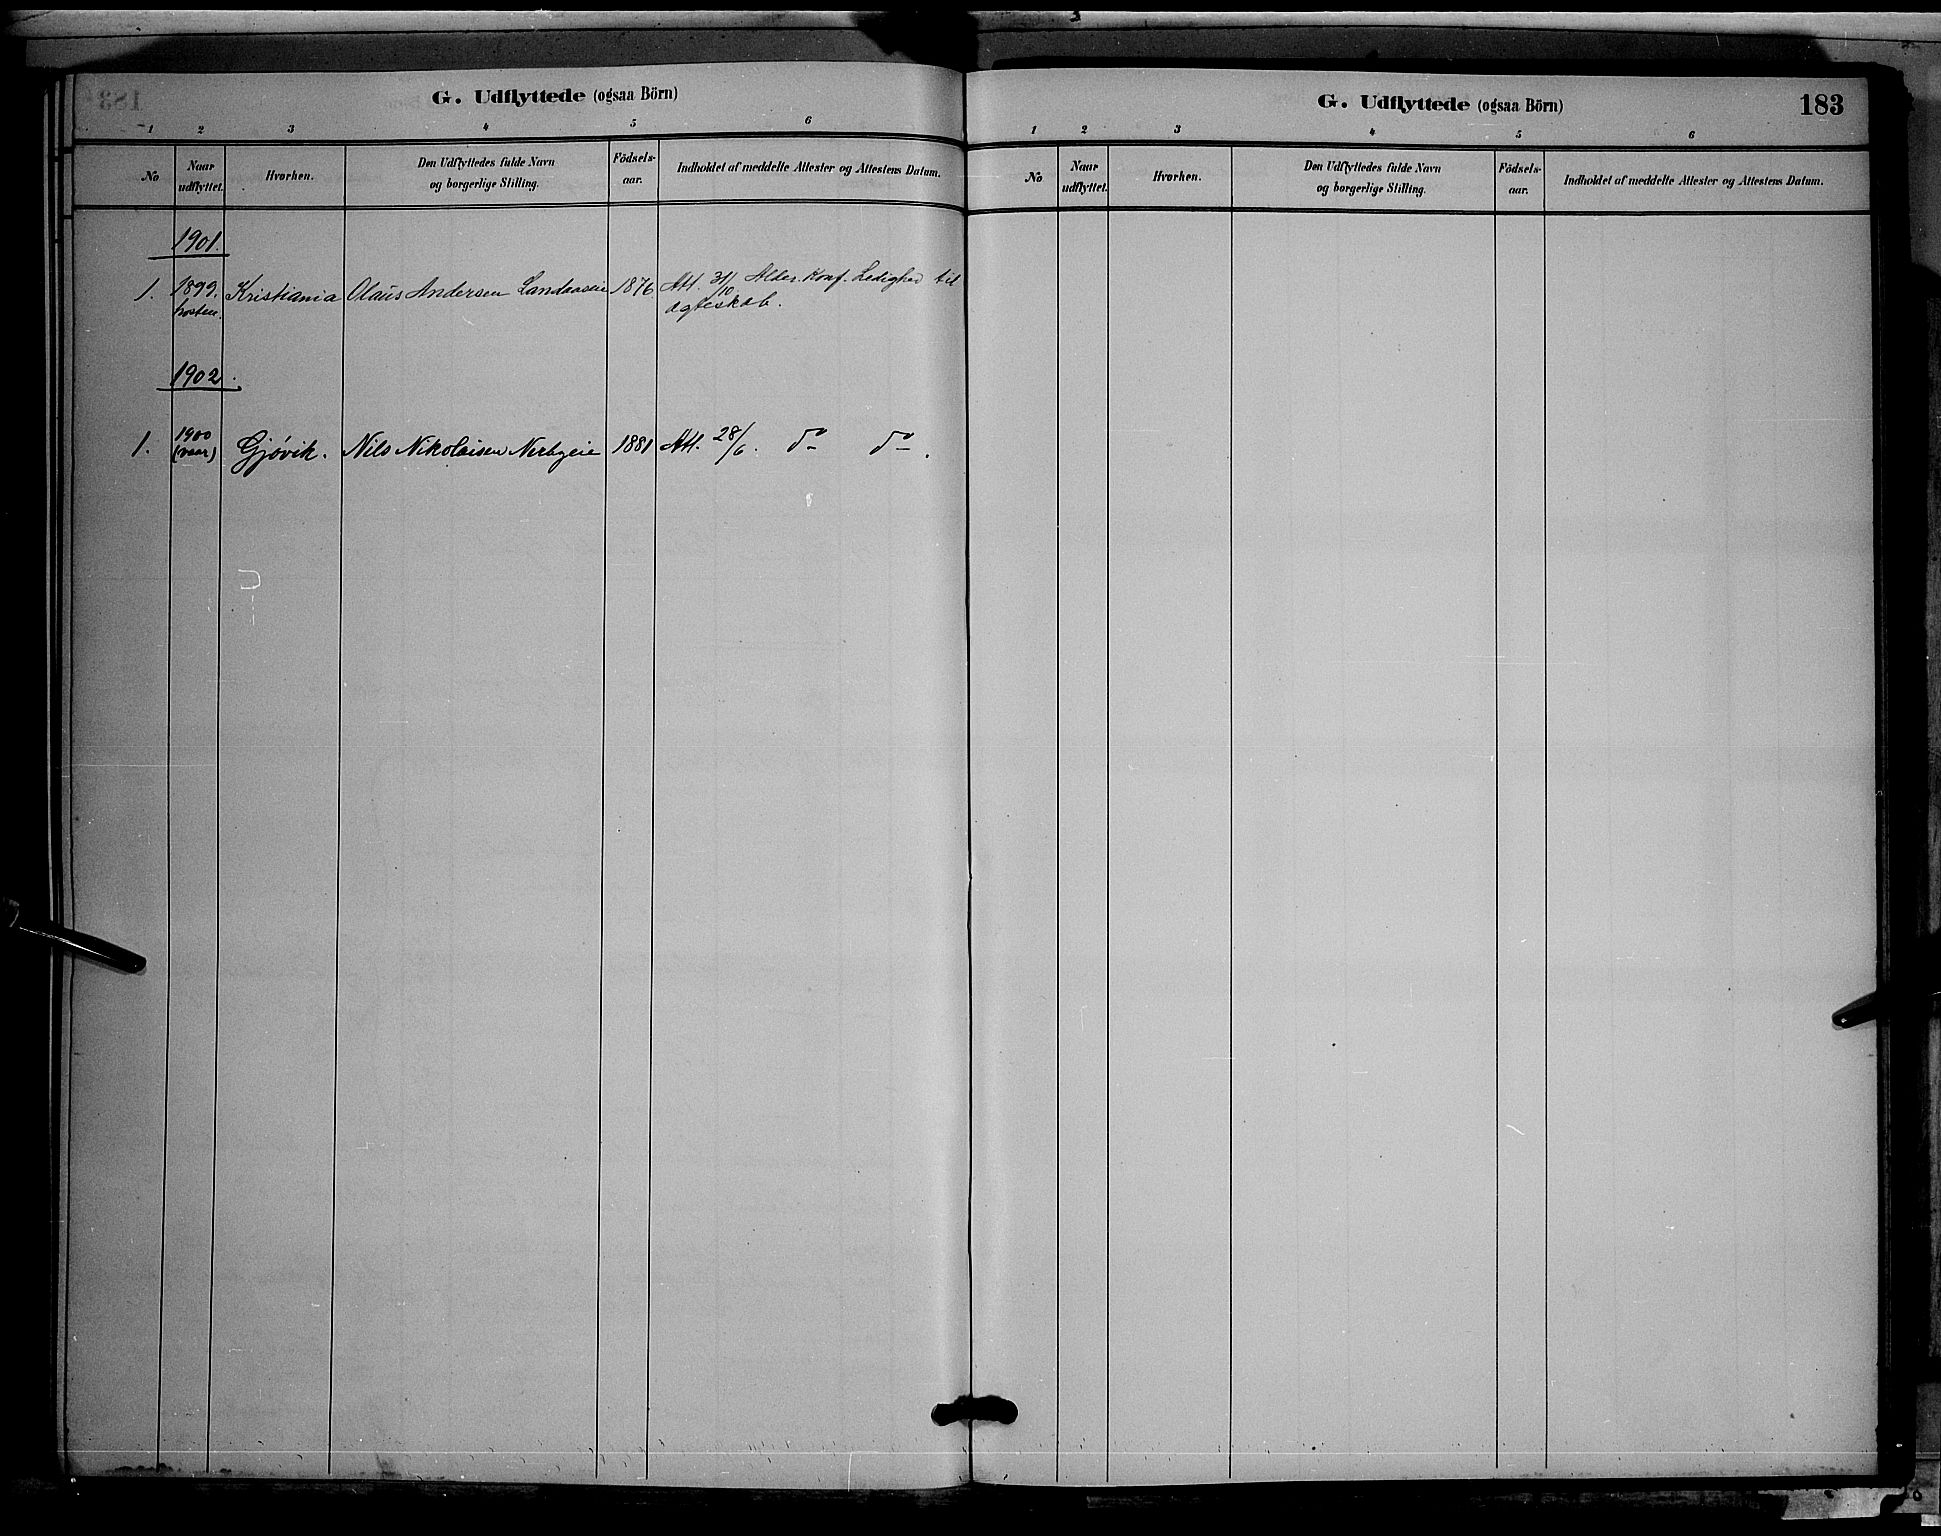 G. Udflyttede (ogsaa Börn)
1 2 3 4 5 6
No
Naar udflyttet.
Hvorhen.
Den Udflyttedes fulde Navn og borgerlige Stilling.
Födsels-aar.
Indholdet af meddelte Attester og Attestens Datum.
1901.
1. 1899, Kristiania Olaüs Andersen Landaasen 1876 Att. 31/10 Alder. Konf. Ledighed til
høsten. ægteskab.
1902.
1. 1900 (vaar) Gjøvik. Nils Nikolaisen Nerbyeie 1881 Att. 28/6. do do.
G. Udflyttede (ogsaa Börn)
183
1 2 3 4 5 6
No
Naar udflyttet.
Hvorhen.
Den Udflyttedes fulde Navn og borgerlige Stilling.
Födsels-aar.
Indholdet af meddelte Attester og Attestens Datum.